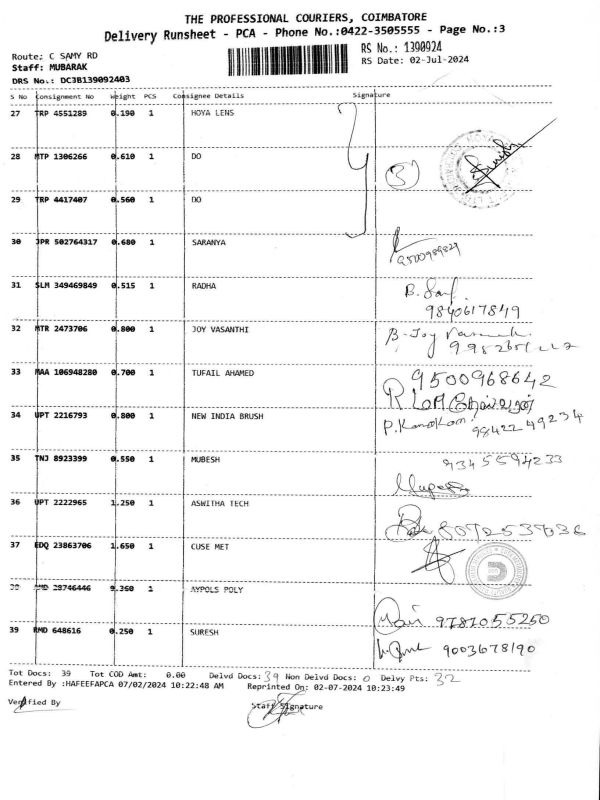 THE PROFESSIONAL COURIERS, COIMBATORE
Delivery Runsheet - PCA - Phone No.:0422-3505555 - Page No.:3
Route: C SAMY RD
RS No.: 1390924
Staff: MUBARAK
RS Date: 02-Jul-2024
DRS No.: DC3B139092403
S No Consignment No Weight PCS Consignee Details Signature
27 TRP 4551289 0.190 1 HOYA LENS
28 MTP 1306266 0.610 1 DO
3
29 TRP 4417407 0.560 1 DO
30 JPR 502764317 0.680 1 SARANYA
9500989829
31 SLM 349469849 0.515 1 RADHA
9840617849
32 MTR 2473706 0.800 1 JOY VASANTHI B-Joy
33 MAA 106948280 0.700 1 TUFAIL AHAMED 9500968642
34 UPT 2216793 0.800 1 NEW INDIA BRUSH
98422 49234
35 TNJ 8923399 0.550 1 MUBESH 9345594233
36 UPT 2222965 1.250 1 ASWITHA TECH
8072537036
37 EDQ 23863706 1.650 1 CUSE MET
38 AMD 29746446 9.360 1 AYPOLS POLY
Mari 9787055250
39 RMD 648616 0.250 1 SURESH
9003678190
Tot Docs: 39 Tot COD Amt: 0.00 Delvd Docs: 39 Non Delvd Docs: 0 Delvy Pts: 32
Entered By :HAFEEFAPCA 07/02/2024 10:22:48 AM Reprinted On: 02-07-2024 10:23:49
Verified By Staff Signature